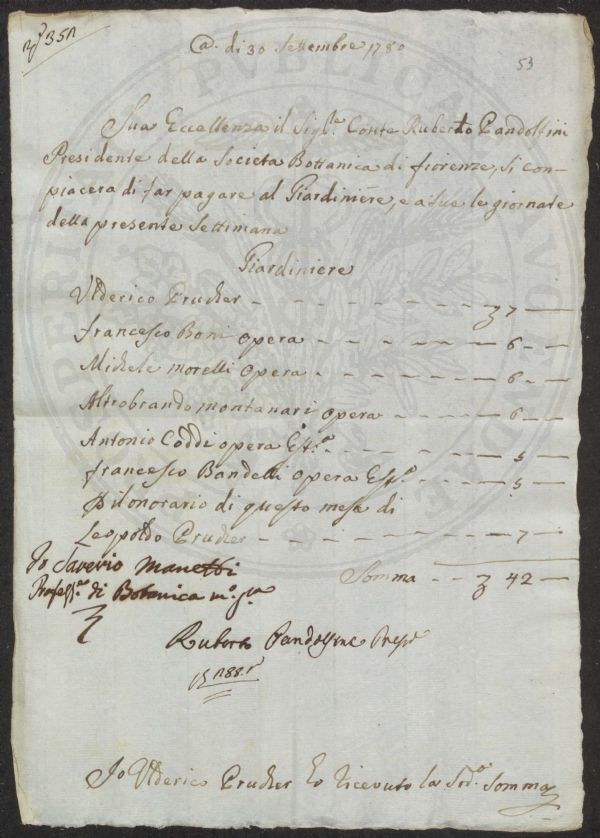 @. di 30 Settembre 1780
53
Sua Eccellenza il Sig.re Conte Ruberto Pandolfini
Presidente della Societa Bottanica di fiorenze, si con-
piacera di far pagare al Giardiniere, e a sue le giornate
della presente Settimana
Giardiniere
Ulderico Prucker - - - - - - - 7 —
francesco Boni opera - - - - - 6 - —
Michele Morelli opera - - - - - 6 - —
Altobrando Montanari opera - - - - 6 —
Antonio Coddi opera Est.a - - - - 5 —
francesco Bandelli opera Est.a - - - 5 —
Pilonorario di questo mese di
Leopoldo Prucker - - - - - 7 —
Io Saverio Manetti
Profess.re di Botanica m.o p.a
Somma - - 42 —
Ruberto Pandolfini Presid.e
Io Ulderico Prucker ho ricevuto la Sud.a Somma